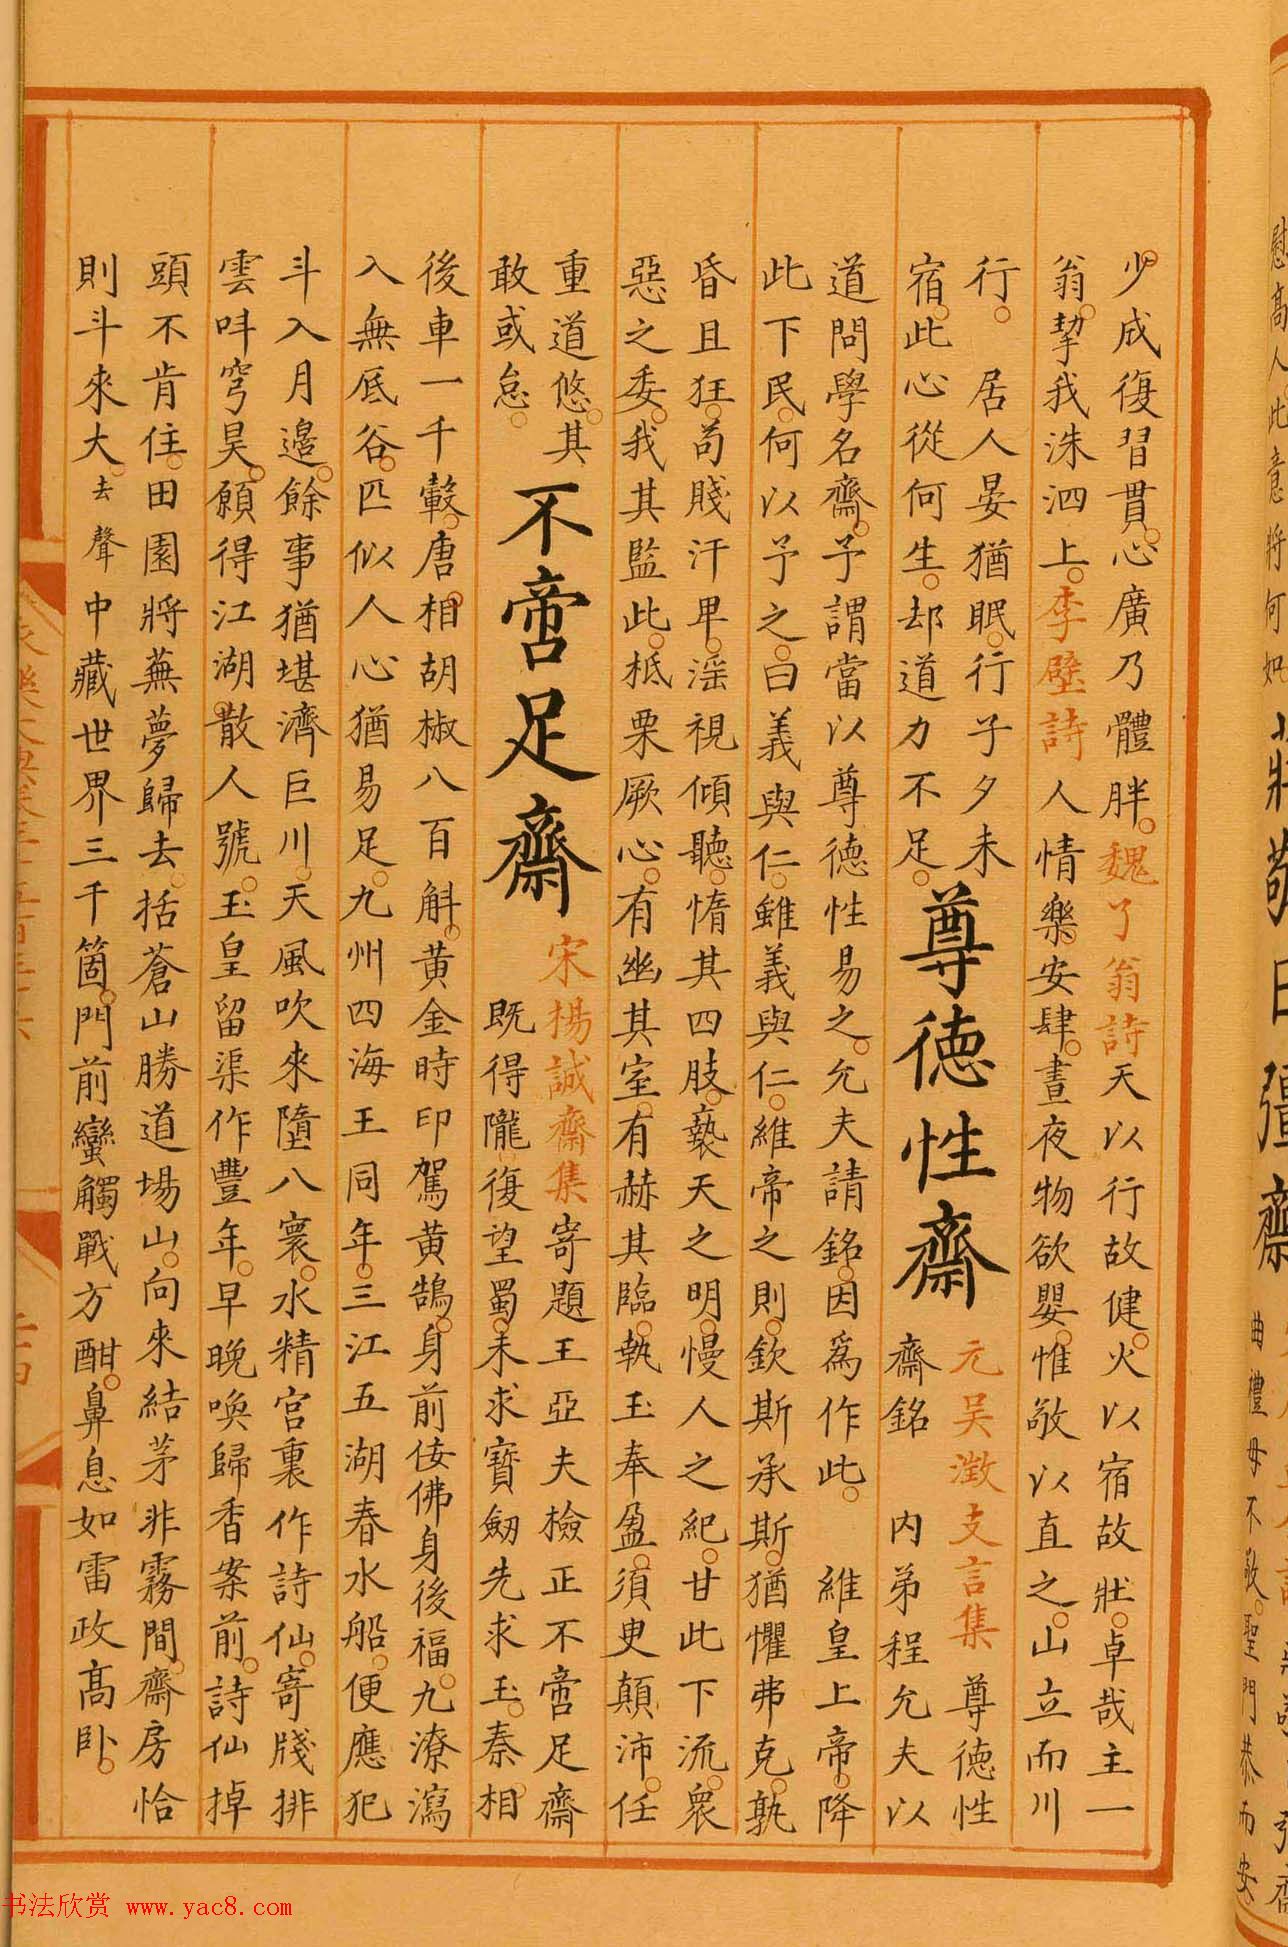 少成復習貫心廣乃體胖魏了翁詩天以行故健火以宿故壯卓哉主一
翁挈我洙泗上李壁詩人情樂安肆晝夜物欲嬰惟敬以直之山立而川
行 居人晏猶眠行子夕未
宿此心從何生却道力不足
尊德性齋
元吳澂支言集尊德性
齋銘 内弟程允夫以
道問學名齋予謂當以尊德性易之允夫請銘因爲作此 維皇上帝降
此下民何以予之曰義與仁雖義與仁維帝之則欽斯承斯猶懼弗克孰
昏且狂苟賤汙卑滛視傾聽惰其四肢褻天之明慢人之紀甘此下流衆
惡之委我其監此柢栗厥心有幽其室有赫其臨執玉奉盈須臾顛沛任
重道悠其
敢或怠
不啻足齋
宋楊誠齋集寄題王亞夫檢正不啻足齋
既得隴復望蜀未求寶劒先求玉秦相
後車一千轂唐相胡椒八百斛黄金時印駕黄鵠身前佞佛身後福九潦瀉
入無底谷匹似人心猶易足九州四海王同年三江五湖春水船便應犯
斗入月邉餘事猶堪濟巨川天風吹來墮八寰水精宮裏作詩仙寄牋排
雲呌穹昊願得江湖散人號玉皇留渠作豐年早晚喚歸香案前詩仙掉
頭不肯住田園將蕪夢歸去括蒼山勝道場山向來結茅非霧間齋房恰
則斗來大去聲中藏世界三千箇門前蠻觸戰方酣鼻息如雷政高卧
慰高人此意將何如
曲禮毋不敬聖門恭而安
书法欣赏 www.yac8.com